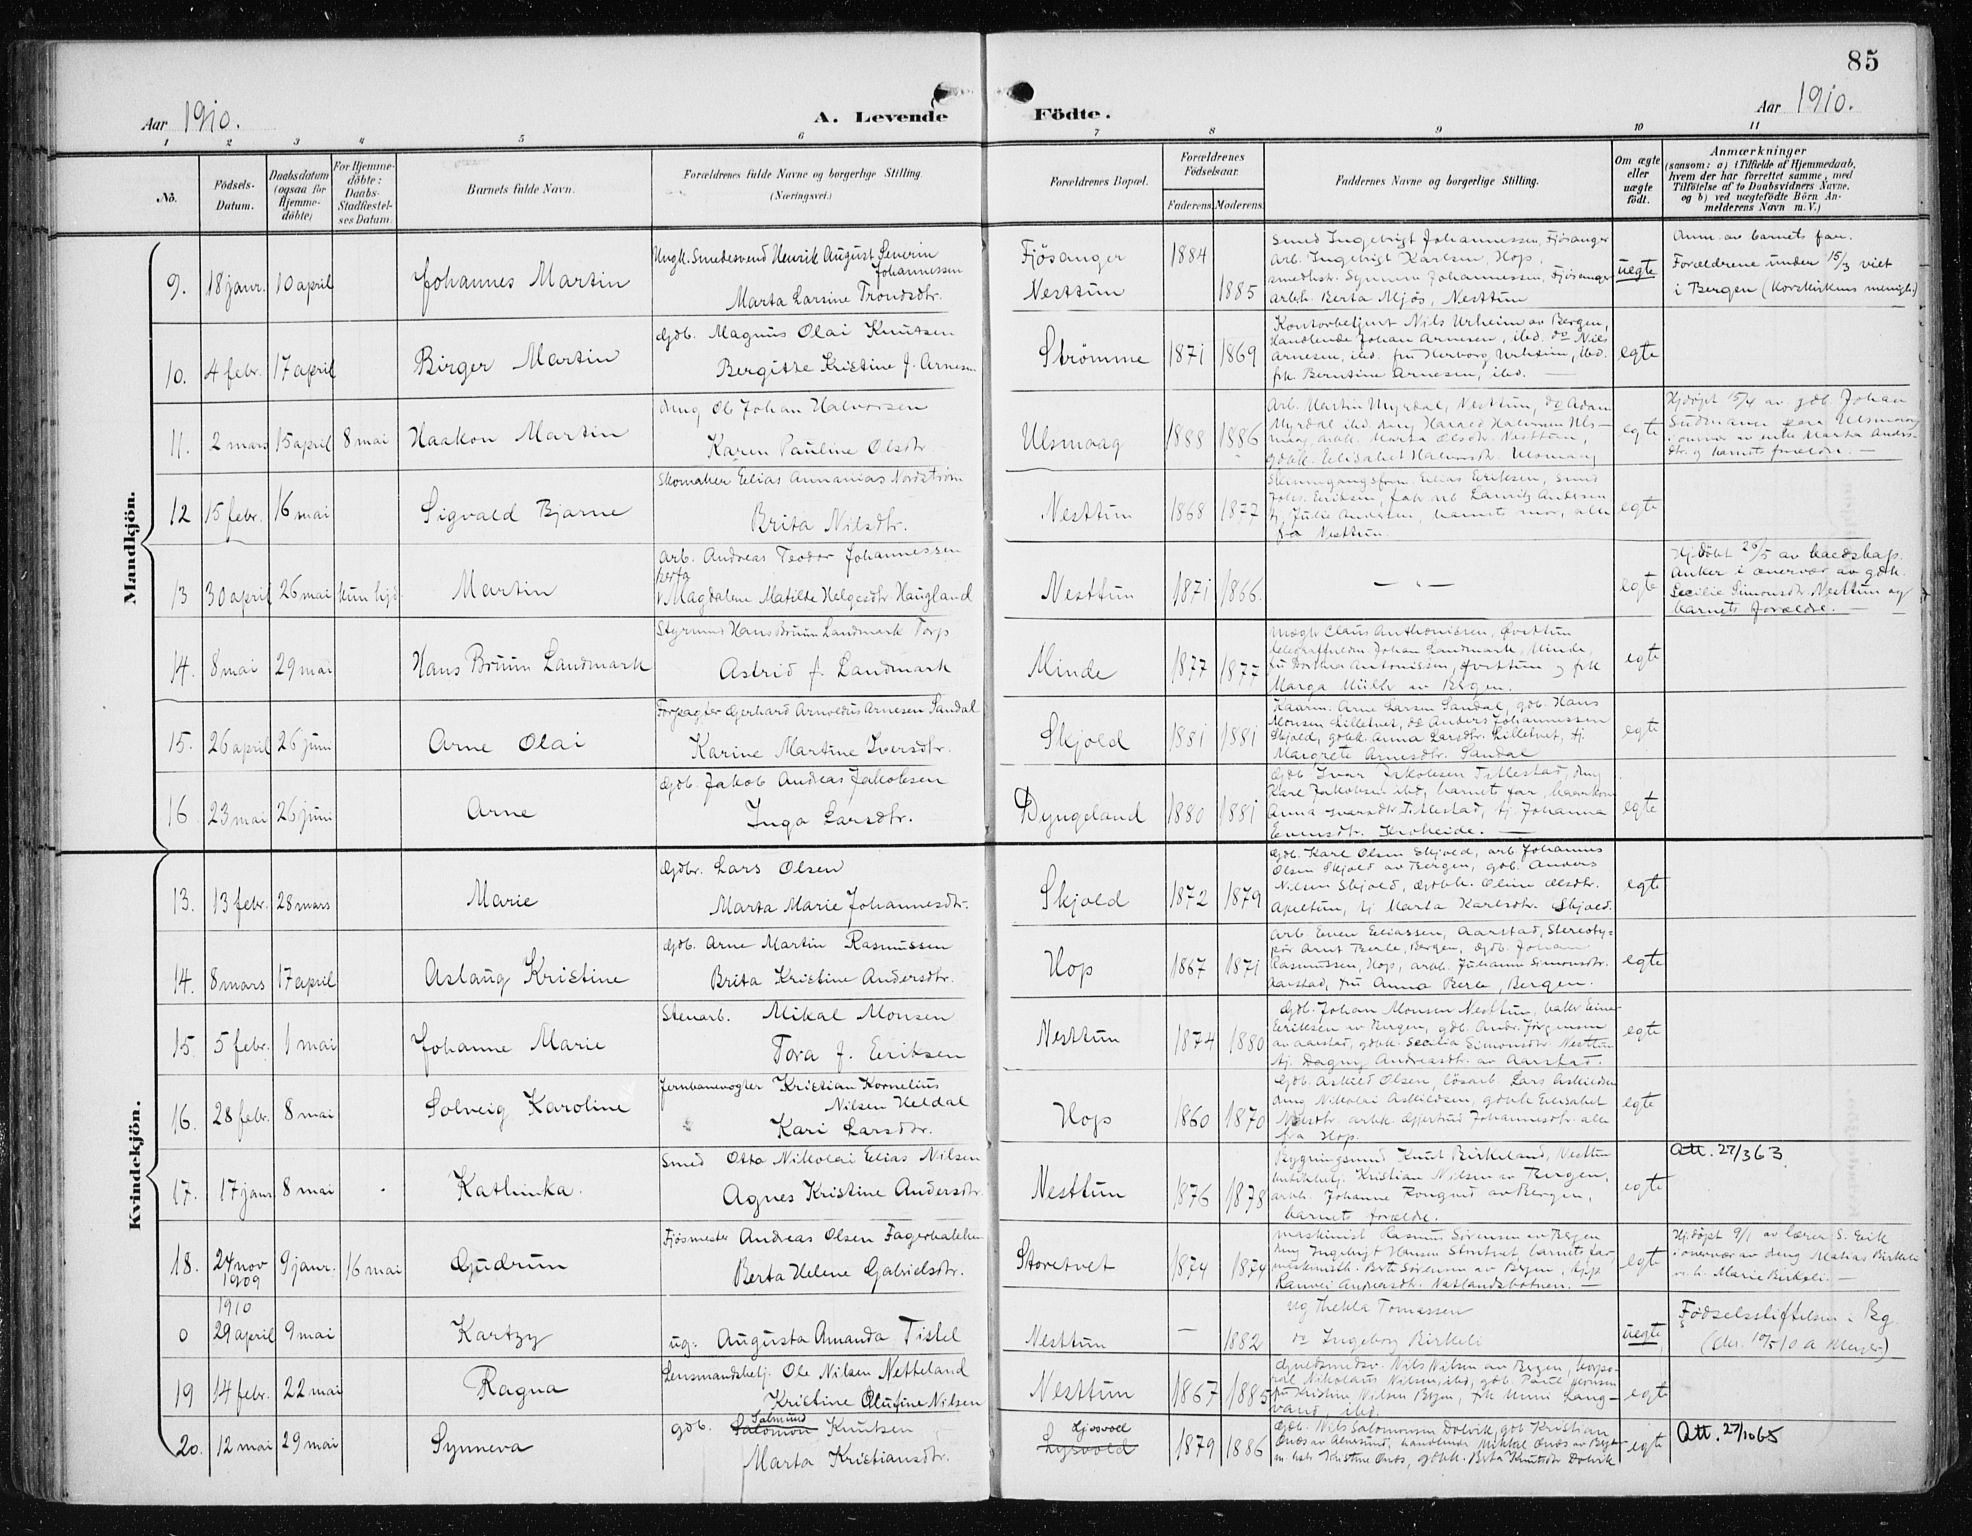 85
Aar 1910.
A. Levende Födte.
Aar 1910.
1 2 3 4 5 6 7 8 9 10 11
No.
Födsels-Datum.
Daabsdatum (ogsaa for Hjemme-döbte)
For Hjemme-döbte: Daabs-Stadfæstel-ses Datum.
Barnets fulde Navn.
Forældrenes fulde Navne og borgerlige Stilling.
(Næringsvei.)
Forældrenes Bopæl.
Forældrenes Födselsaar.
Faderens Moderens
Faddernes Navne og borgerlige Stilling.
Om ægte eller uægte födt.
Anmærkninger
(saasom: a) i Tilfælde af Hjemmedaab,
hvem der har forrettet samme, med
Tilföielse af to Daabsvidners Navne.
og b) ved uægtefödte Börn An-
melderens Navn m.V.)
Mandkjön.
9. 18 janr. 10 april Johannes Martin
Ungk. Smedesvend Henrik August Severin
Johannessen
Marta Larsine Trondsdtr.
Fjösanger 1884
Nesttun 1885
Smed Ingebrigt Johannessen, Fjösanger
arb. Ingebrigt Karlsen, Hop,
smedhstr. Synneva Johannessen, Fjösanger
arbk. Berta Mjös, Nesttun
uegte
Anm. av barnets far.
Forældrene under 15/3 viet
i Bergen (Korskirkens menigh.)
10. 4 febr. 17 april Birger Martin
Gdb. Magnus Olai Knutsen
Bergitte Kristine f. Arnesen
Strömme 1871 1869
Kontorbetjent Nils Urheim av Bergen,
Handlende Johan Arnesen, ibd. do Nils
Arnesen, ibd. fru Herborg Urheim, ibd.
frk. Berntine Arnesen, ibd.
egte
11. 2 mars 15 april 8 mai Haakon Martin
Ole Johan Halvorsen
Karen Pauline Olsdtr.
Ulsmaag 1888 1886
Arb. Martin Myrdal, Nesttun, do Adam
Myrdal ibd. Harald Halvorsen Uls-
maag, arbk. Marta Olsdtr. Nesttun,
gdbk. Elisabet Halvorsdtr. Ulsmaag
egte
Hjdöpt 15/4 av gdb. Johan
Ulsmaag
i nærvær av enke Marta Anders-
dtr. og barnets forældre.
12 15 febr. 16 mai Sigvald Bjarne
Skomaker Elias Annanias Nordström
Brita Nilsdtr.
Nesttun 1868 1877
Elias Eriksen, Smed
Eriksen, fabr. arb. Lauritz Andersen
Julie Andersen, barnets mor, alle
fra Nesttun.
egte
13 30 april 26 mai kun hjd. Martin
Arb. Andreas Teodor Johannessen
Berta
Magdalene Matilde Helgesdtr. Haugland
Nesttun 1871 1866.
— " —
egte
Hjdöbt 26/5 av
Anker i nærvær av gdbk.
Cecilie Simonsdtr. Nesttun og
barnets forældre.
14. 8 mai 29 mai Hans Bruun Landmark
Styrmand Hans Bruun Landmark Torp
Astrid f. Landmark
Minde 1877 1877
Claus Anthonisen, Övsttun
Johan Landmark, Minde,
fru Dorthea Antonissen, Övsttun og frk.
Marga Müller av Bergen.
egte
15. 26 april 26 juni Arne Olai
Forpagter Gerhard Arnoldus Arnesen Sandal
Karine Martine Iversdtr.
Skjold 1881 1881
Kaarm. Arne Larsen Sandal, gdb. Hans
Monsen Lilletvet, do Anders Johannessen
Skjold, gdbk. Anna Larsdtr. Lilletvet, tj.
Margrete Arnesdtr. Sandal
egte
16. 23 mai 26 juni Arne
Gdb. Jakob Andreas Jakobsen
Inga Larsdtr.
Dyngeland 1880 1881
Gdb. Ivar Jakobsen Titlestad, ung
Karl Jakobsen ibd, barnets far,
Anna Ivarsdtr. Titlestad, tj. Johanna
Evensdtr. Kroheide.
egte
Kvindekjön.
13. 13 febr. 28 mars Marie
Gdbr. Lars Olsen
Marta Marie Johannesdtr.
Skjold 1872 1879
Gdb. Karl Olsen Skjold, arb. Johannes
Olsen Skjold av Bergen, gdb. Anders
Nilsen Skjold, gdbk. Oline Olsdtr.
Apeltun, tj. Marta Karlsdtr. Skjold.
egte
14. 8 mars 17 april Aslaug Kristine
Gdb. Arne Martin Rasmussen
Brita Kristine Andersdtr.
Hop 1867 1871
Arb. Even Eliassen, Aarstad, Stereoty-
pör Arnt Berle, Bergen, Gdb. Johan
Rasmussen, Hop, arbk. Johanne Simonsdtr.
Aarstad, fru Anna Berle, Bergen.
egte
15. 5 febr. 1 mai Johanne Marie
Stenarb. Mikal Monsen
Tora f. Eriksen
Nesttun 1874 1880
Gdb. Johan Monsen Nesttun, Einar
Eriksen av Bergen, gdb. Andr. Jörgensen
av Aarstad, gdbk. Secilia Simonsdtr. Nesttun
tj. Dagny Andreasdtr. av Aarstad.
egte
16. 28 febr. 8 mai Solveig Karoline
Jernbanevogter Kristian Kornelius
Nilsen Heldal
Kari Larsdtr.
Hop 1860 1870
Gdb. Askild Olsen, lösarb. Lars Askildsen
ung Nikolai Askildsen, gdbk Elisabet
Nilsdtr. arbk. Gjertrud Johannesdtr. alle
fra Hop.
egte
17. 17 janr 8 mai Kathinka.
Smed Otto Nikolai Elias Nilsen
Agnes Kristine Andersdtr.
Nesttun 1876 1878
Bygningssmed Knut Birkeland, Nesttun
butikbetj. Kristian Nilsen av Bergen,
arbk. Johanne Rongved av Bergen,
barnets forældre.
egte
Att. 27/3 63
18. 24 nov 1909 9 janr. 16 mai Gudrun
Fjösmester Andreas Olsen Fagerbakken
Berta Helene Gabrielsdtr.
Storetvet 1874 1874
maskinist Rasmus Sörensen av Bergen
ung Ingebrigt Hansen Storetvet, barnets far,
Berte Sörensen av Bergen,
Rannei Andreasdtr. Natlandsbotnen.
egte
Hj.döpt 9/1 av lærer S. Erik
i nærvær av Matias Birkeli
Marie Birkeli.
1910
0 29 april 9 mai Kartzy
ug: Augusta Amanda Tistel
Nesttun — 1882
ug Thekla Tomassen
do Ingeborg Birkeli
uegte
Födselsstiftelsen i Bg
19 14 febr. 22 mai Ragna
Lensmandsbetj. Ole Nilsen Netteland
Kristine Olufine Nilsen
Nesttun 1867 1885
Nils Nilsen av Bergen, korpo-
ral Nikolaus Nilsen, ibd, gdb. Paul Monsen
fru Kristine Nilsen Bergen, frk Mimi Lang-
vand, ibd.
egte
20. 12 mai 29 mai Synneva
gdb. Salomon Salmund Knutsen
Marta Kristiansdtr.
Lysvold Ljosvol 1879 1886
Gdb. Nils Salomonsen Dolvik, gdb Kristian
Önæs av Aalesund, handlende Mikkel Önes av Berg-
en, Kristine Önes, gdbk. Berta Knutsdtr Dolvik
egte
Att. 27/10 65